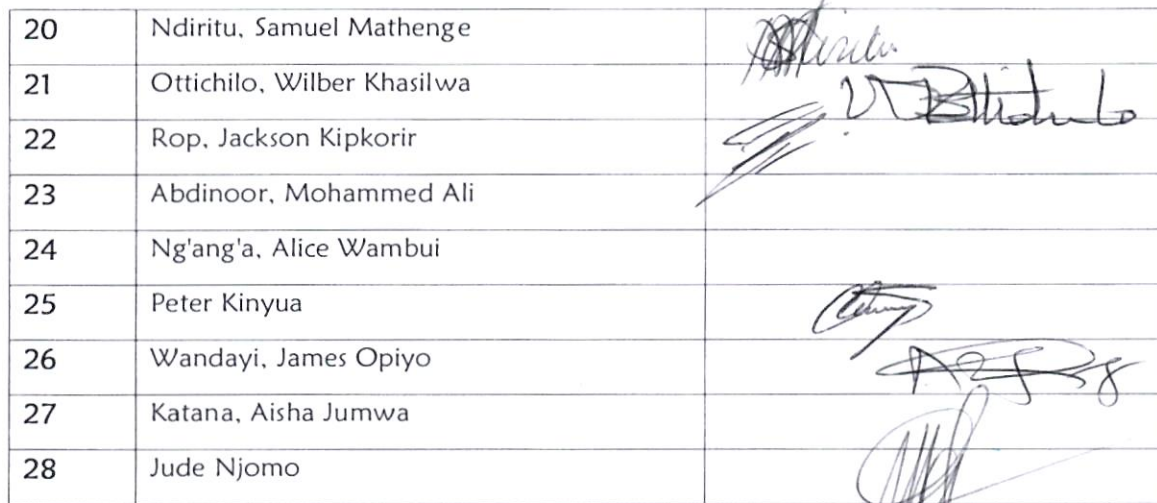 20 Ndiritu, Samuel Mathenge
21 Ottichilo, Wilber Khasilwa
22 Rop, Jackson Kipkorir
23 Abdinoor, Mohammed Ali
24 Ng'ang'a, Alice Wambui
25 Peter Kinyua
26 Wandayi, James Opiyo
27 Katana, Aisha Jumwa
28 Jude Njomo